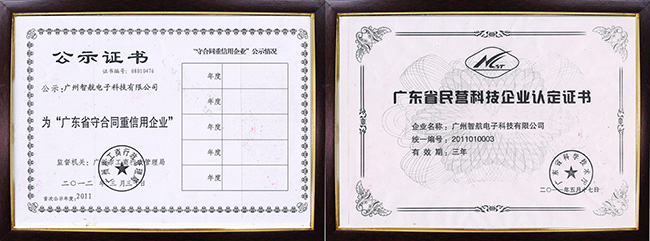 公示证书
证书编号：08019474
公示：广州智航电子科技有限公司
为“广东省守合同重信用企业”
监督机关：广州市工商行政管理局
二〇一二年三月三十日
首次公示年度：2011
“守合同重信用企业”公示情况
年度
年度
年度
年度
年度
广东省民营科技企业认定证书
企业名称：广州智航电子科技有限公司
统一编号：2011010003
有效期：三年
广东省科学技术厅
二〇一一年五月十七日